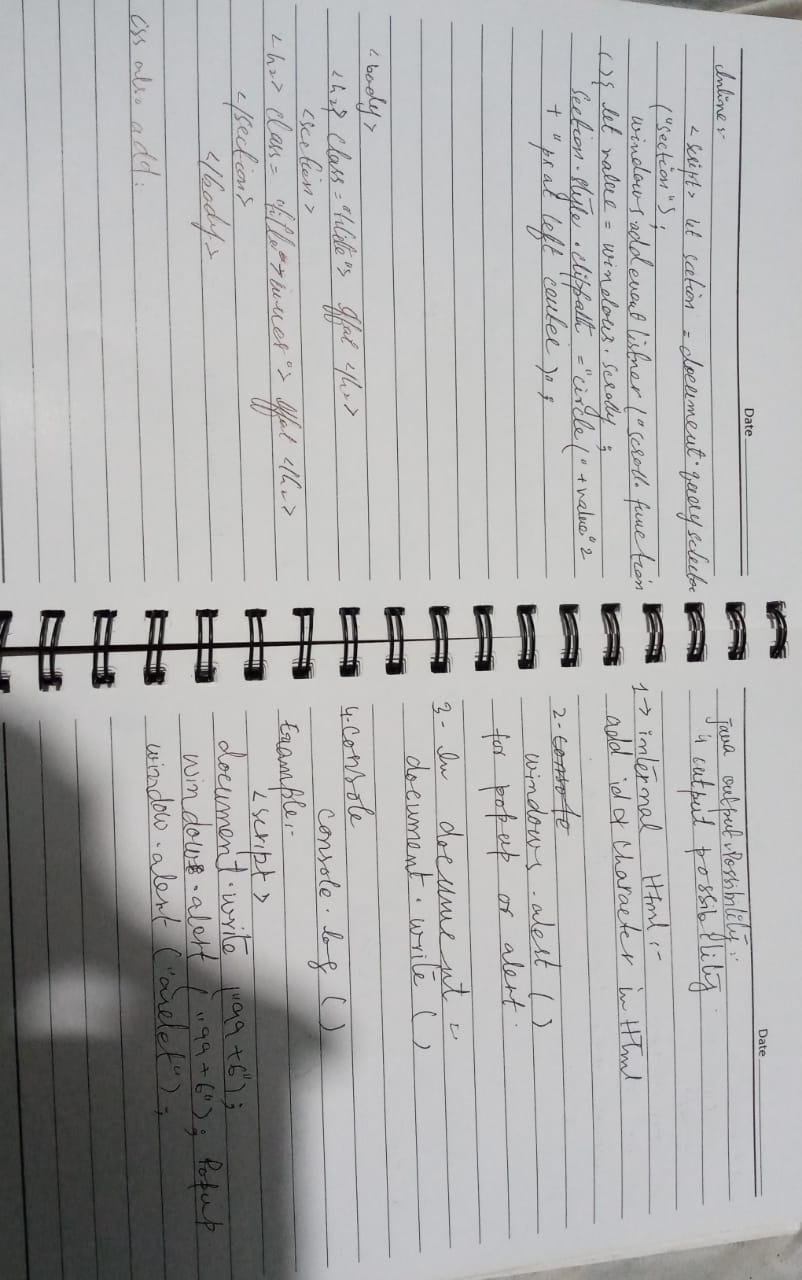 Date
Inline :-
<script> let section = document.query selector
("section");
windows add event listner ("scroll. function
() { let value = windows. scrolly ;
section. style . clippath = "circle (" + value" 2
+ "px at left center )" ;
<body>
<h2> class = "title"> </h2>
<section>
<h2> class = inner"> </h2>
</section>
</body>
css also add :
Date
java output Possibility :-
4 output possibility.
1 → internal Html :-
add id or character in Html
2 -
windows . alert ( )
for popup or alert.
3 - In document :-
document . write ( )
4. Console
console . log ( )
Example :-
<script>
document . write ("99 + 6");
windows . alert ("99 + 6"); Popup
window . alert (" ");